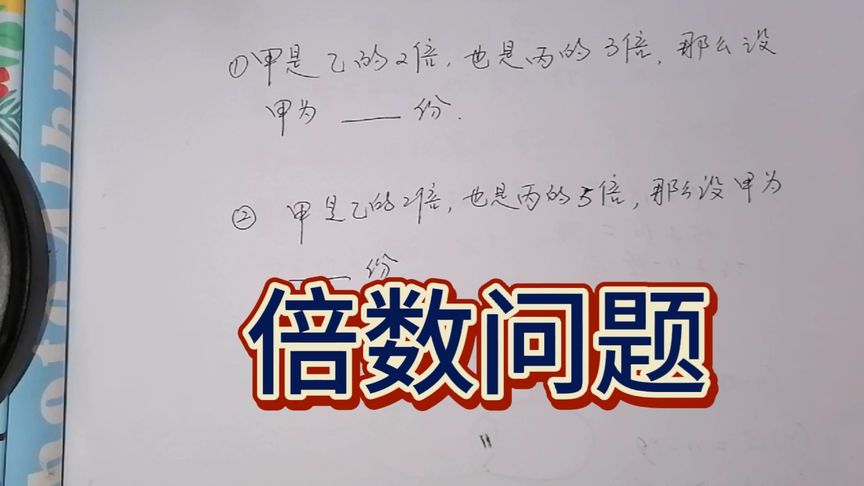 ①甲是乙的2倍，也是丙的3倍，那么设
甲为 ___ 份.
② 甲是乙的2倍，也是丙的5倍，那么设甲为
___ 份
倍数问题